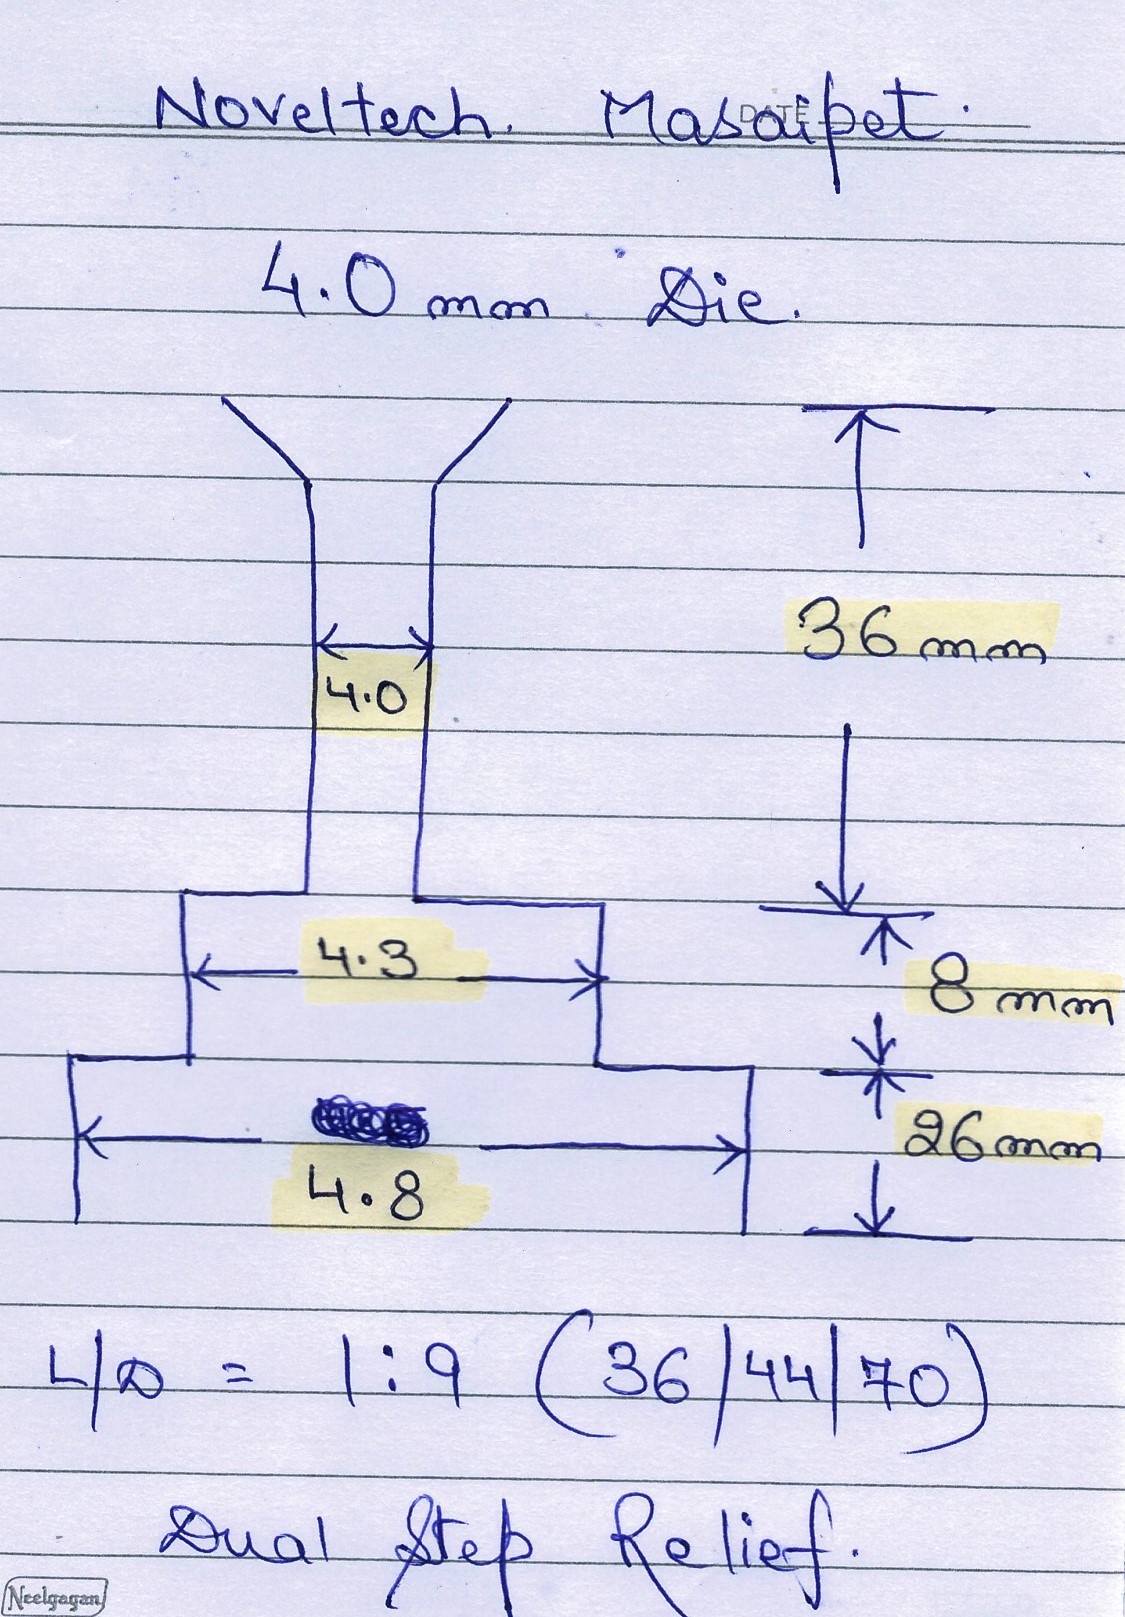 Noveltech. Masaipet.
DATE
4.0 mm Die.
36 mm
4.0
4.3
8 mm
26 mm
4.8
L/D = 1:9 (36/44/70)
Dual Step Relief.
Neelgagan